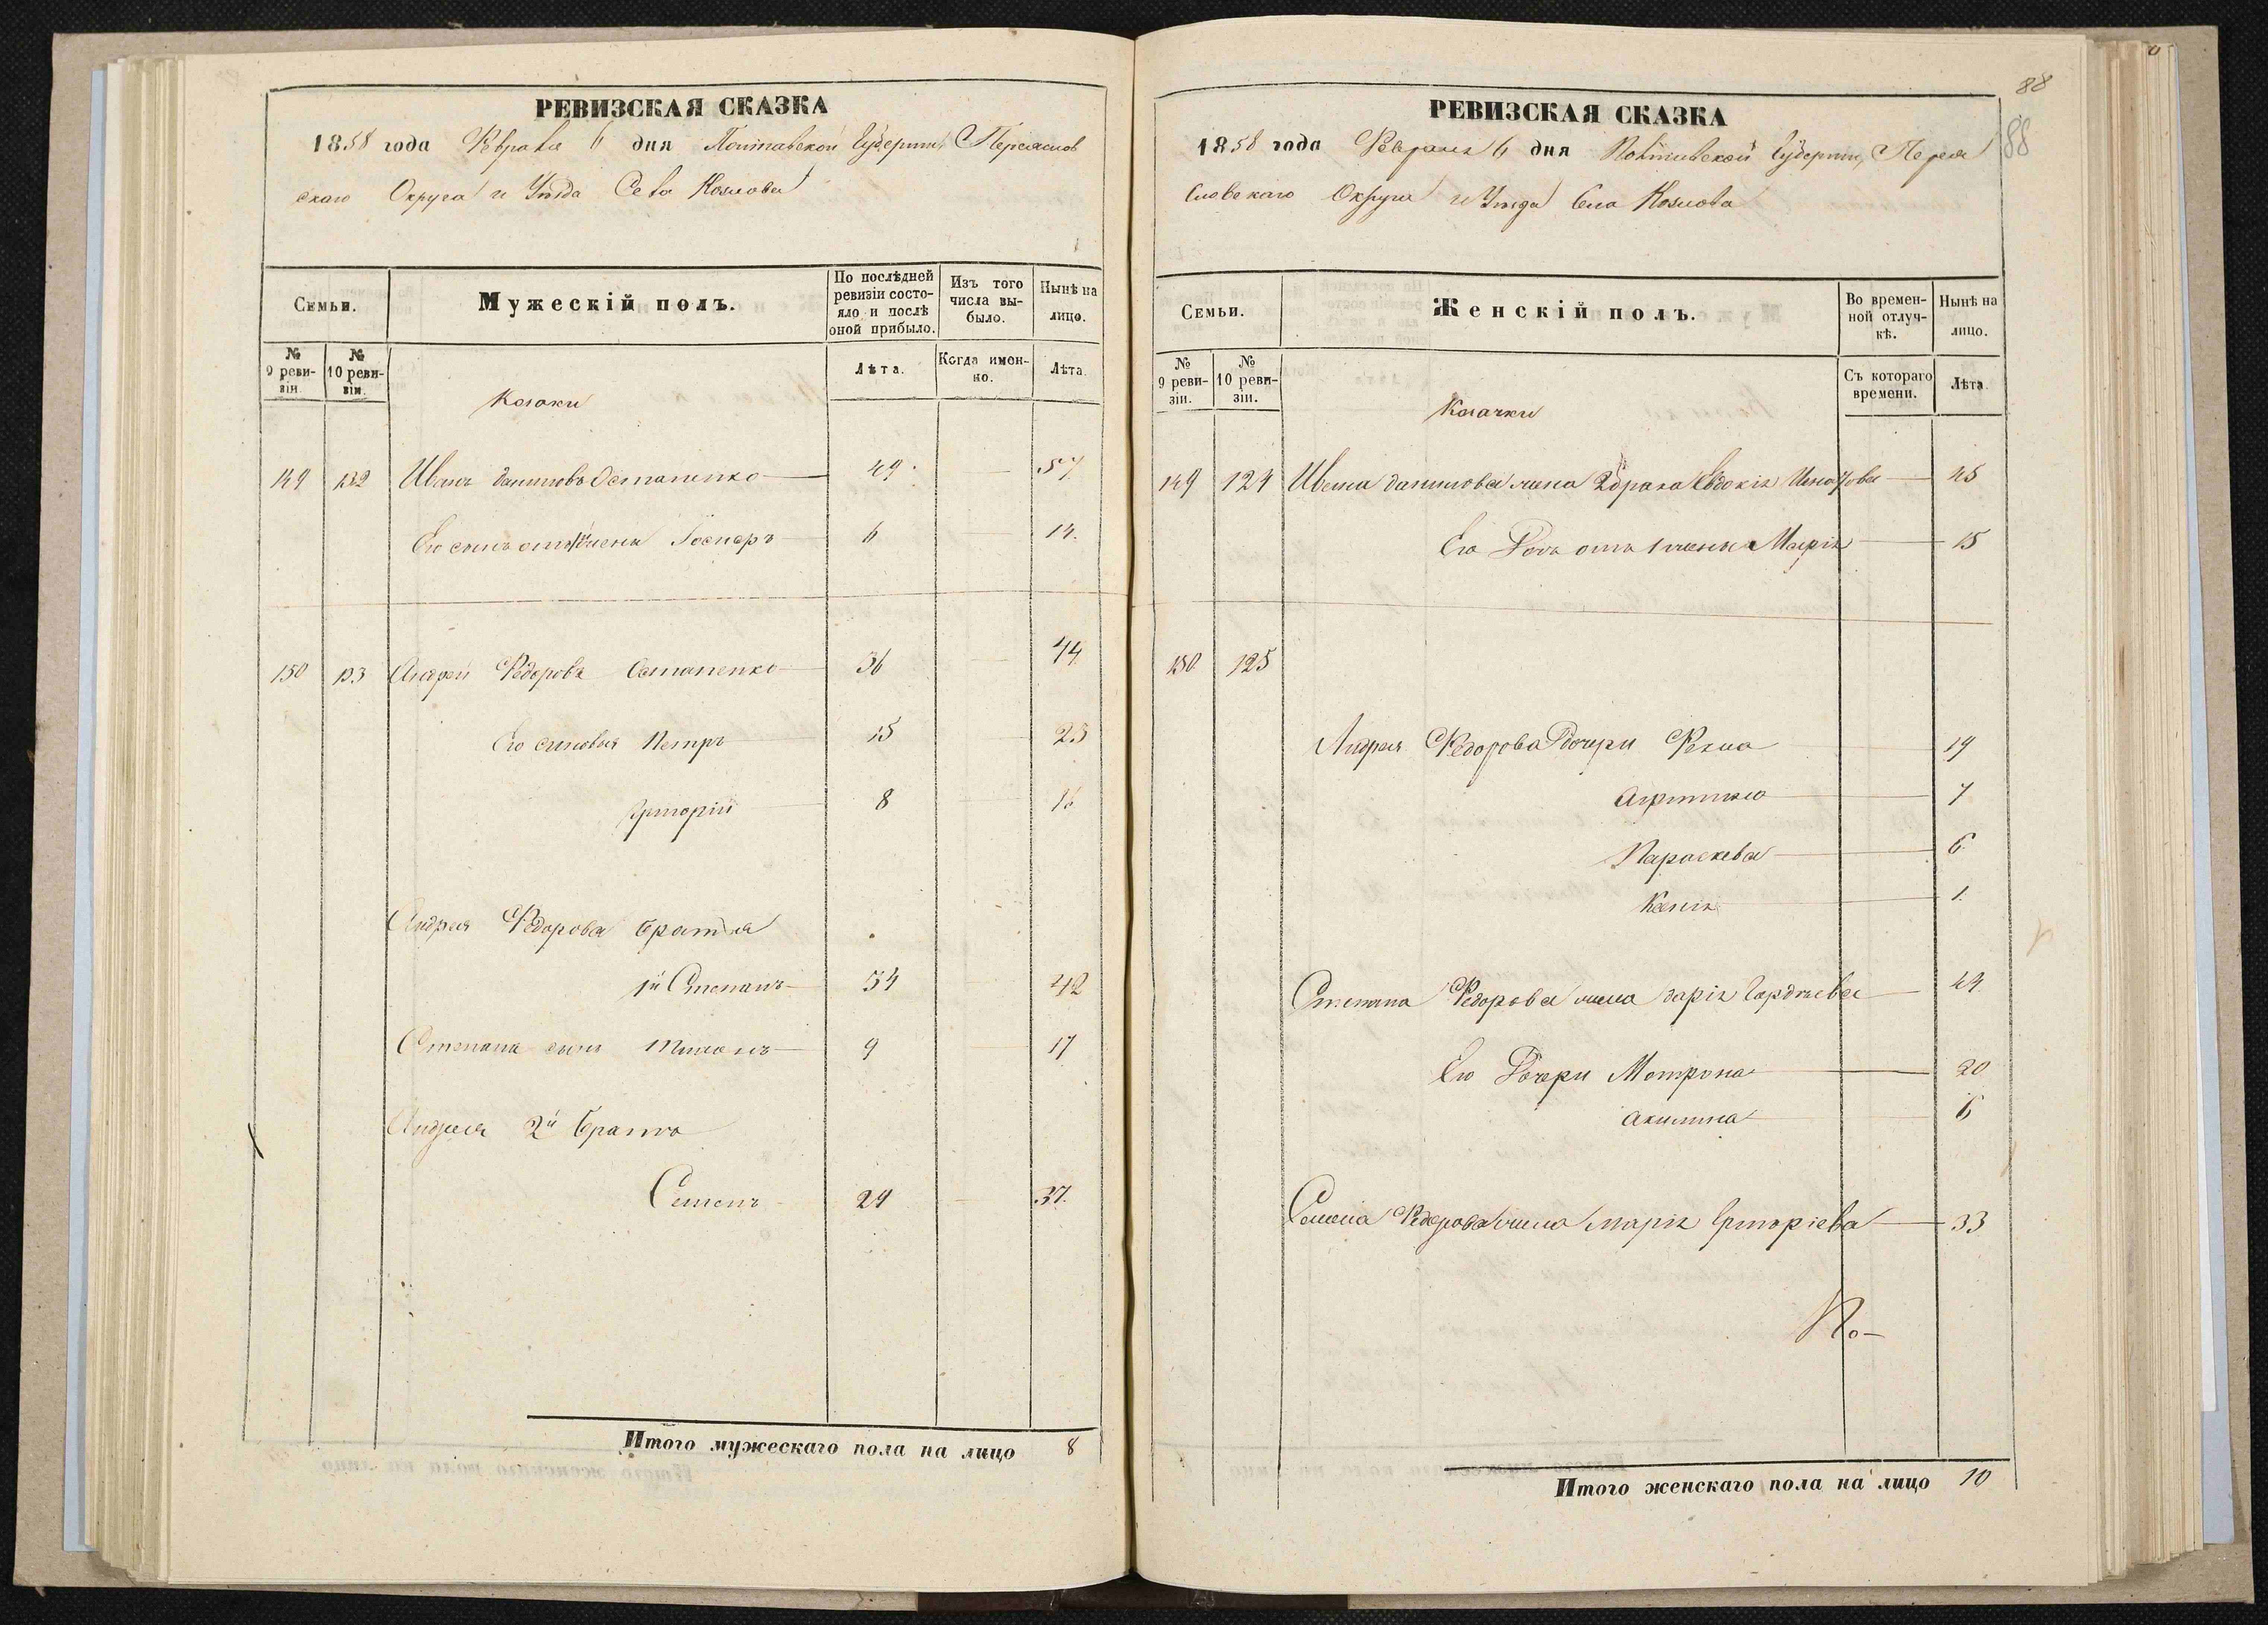 РЕВИЗСКАЯ СКАЗКА
1858 года Февраля 6 дня Полтавской Губерніи Переяслов
скаго Округа и Уѣзда Села Козлова
Семьи.
Мужескій полъ.
По послѣдней ревизіи состояло и послѣ оной прибыло.
Изъ того числа выбыло.
Нынѣ на лицо.
№ 9 ревизіи.
№ 10 ревизіи.
Казаки
Лѣта.
Когда именно.
Лѣта.
149 Иванъ Даниловъ Остапенко 49 57.
Его сынъ отъ жены 6 14.
150 123 Андрей Федоровъ Остапенко 36 44.
Его сыновья Петръ 15 23
Григорій 8 16
Андрея Федорова братья
1й Степанъ 34 42
Степана сынъ 9 17
Андрея 2й братъ
Семенъ 29 37.
Итого мужескаго пола на лицо 8
88
88
РЕВИЗСКАЯ СКАЗКА
1858 года Февраля 6 дня Полтавской Губерніи, Перея
словскаго Округа и Уѣзда Села Козлова
Семьи.
Женскій полъ.
Во временной отлучкѣ.
Нынѣ на лицо.
№ 9 ревизіи.
№ 10 ревизіи.
Козачки
Съ котораго времени.
Лѣта.
149 124 Ивана Данилова жена 2 брака Евдокія 45
Его дочь отъ 1 жены Марія 15
150 125
Андрея Федорова дочери Фекла 19
7
Параскева 6.
Ксенія 1.
Степана Федорова жена Дарія Гордѣева 44
Его Дочери Мотрона 20
Акилина 6
Семена Федорова жена Марія Григоріева 33
По-
Итого женскаго пола на лицо 10